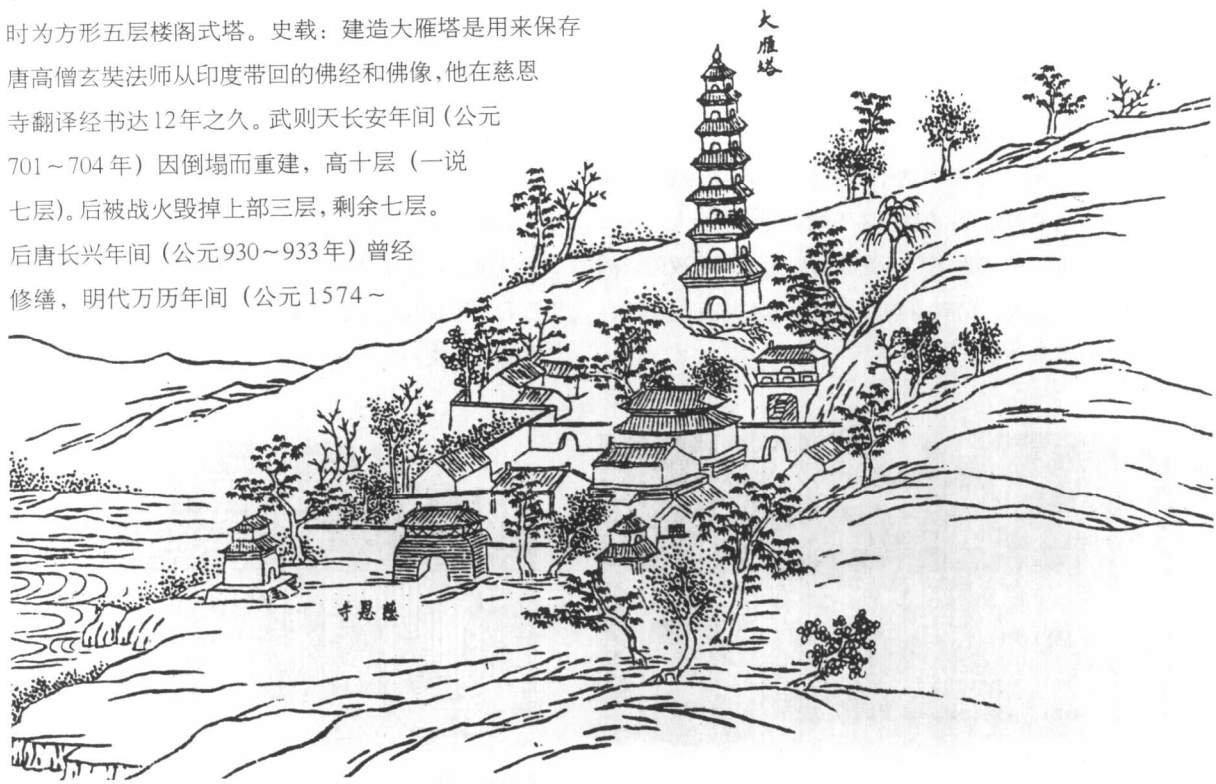 时为方形五层楼阁式塔。史载：建造大雁塔是用来保存
唐高僧玄奘法师从印度带回的佛经和佛像,他在慈恩
寺翻译经书达12年之久。武则天长安年间（公元
701～704年）因倒塌而重建，高十层（一说
七层）。后被战火毁掉上部三层,剩余七层。
后唐长兴年间（公元930～933年）曾经
修缮，明代万历年间（公元1574～
大雁塔
慈恩寺